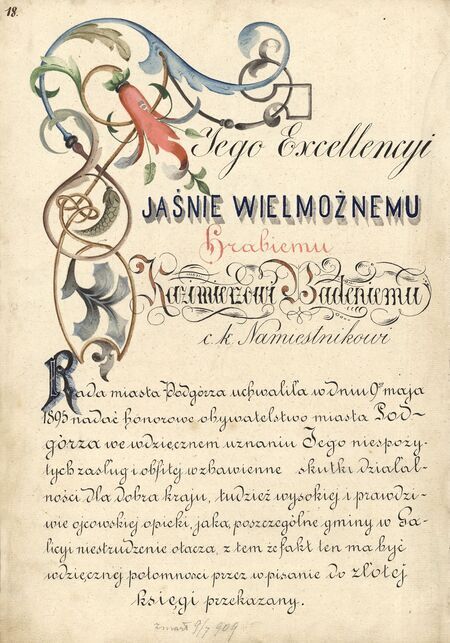 18.
Jego Excellencyi
JAŚNIE WIELMOŻNEMU
Hrabiemu
Kazimierzowi Badeniemu
c. k. Namiestnikowi
Rada miasta Podgórza uchwaliła w dniu 9go maja
1893 nadać honorowe obywatelstwo miasta Pod-
górza we wdzięcznem uznaniu Jego niespoży-
tych zasług i obfitej w zbawienne skutki działal-
ności dla dobra kraju, tudzież wysokiej i prawdzi-
wie ojcowskiej opieki, jaką poszczególne gminy w Ga-
licyi niestrudzenie otacza, z tem że fakt ten ma być
wdzięcznej potomności przez wpisanie do złotej
księgi przekazany.
zmarł 9/7 909